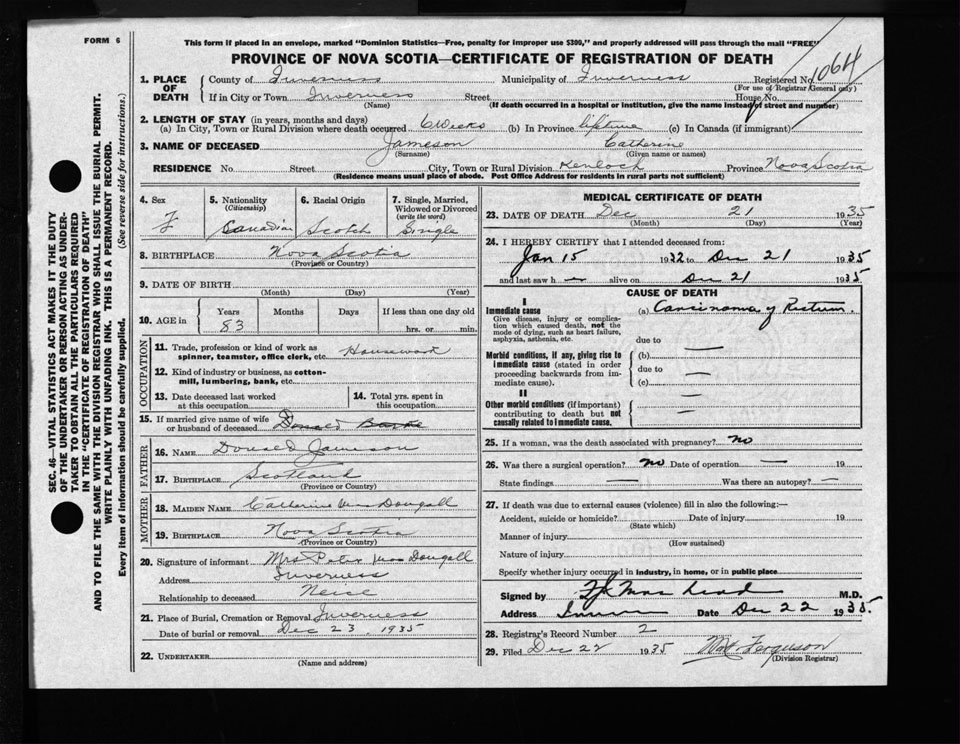 FORM 6
This form if placed in an envelope, marked "Dominion Statistics—Free, penalty for improper use $300," and properly addressed will pass through the mail "FREE"
PROVINCE OF NOVA SCOTIA—CERTIFICATE OF REGISTRATION OF DEATH
1064
1. PLACE OF DEATH County of Inverness Municipality of Inverness Registered No.
(For use of Registrar General only)
If in City or Town Inverness Street House No.
(Name) (If death occurred in a hospital or institution, give the name instead of street and number)
2. LENGTH OF STAY (in years, months and days)
(a) In City, Town or Rural Division where death occurred 6 Weeks (b) In Province lifetime (c) In Canada (if immigrant)
3. NAME OF DECEASED Jameson Catherine
(Surname) (Given name or names)
RESIDENCE No. Street City, Town or Rural Division Kenloch Province Nova Scotia
(Residence means usual place of abode. Post Office Address for residents in rural parts not sufficient)
4. Sex F
5. Nationality (Citizenship) Canadian
6. Racial Origin Scotch
7. Single, Married, Widowed or Divorced (write the word) Single
8. BIRTHPLACE Nova Scotia
(Province or Country)
9. DATE OF BIRTH
(Month) (Day) (Year)
10. AGE in Years Months Days If less than one day old
83 hrs. or min.
OCCUPATION
11. Trade, profession or kind of work as
spinner, teamster, office clerk, etc. Housework
12. Kind of industry or business, as cotton-
mill, lumbering, bank, etc.
13. Date deceased last worked
at this occupation
14. Total yrs. spent in
this occupation
15. If married give name of wife
or husband of deceased Donald
FATHER
16. NAME Donald Jameson
17. BIRTHPLACE Scotland
(Province or Country)
MOTHER
18. MAIDEN NAME Catherine MacDougall
19. BIRTHPLACE Nova Scotia
(Province or Country)
20. Signature of informant Mrs Peter MacDougall
Address Inverness
Relationship to deceased Neice
21. Place of Burial, Cremation or Removal Inverness
Date of burial or removal Dec 23, 1935
22. UNDERTAKER
(Name and address)
MEDICAL CERTIFICATE OF DEATH
23. DATE OF DEATH Dec 21 1935
(Month) (Day) (Year)
24. I HEREBY CERTIFY that I attended deceased from:
Jan 15 1932 to Dec 21 1935
and last saw h alive on Dec 21 1935
CAUSE OF DEATH
I
Immediate cause (a) Carcinoma of Rectum.
Give disease, injury or complica-
tion which caused death, not the
mode of dying, such as heart failure,
asphyxia, asthenia, etc.
due to
Morbid conditions, if any, giving rise to (b)
immediate cause (stated in order
proceeding backwards from im-
mediate cause).
due to
(c)
II
Other morbid conditions (if important)
contributing to death but not
causally related to immediate cause.
25. If a woman, was the death associated with pregnancy? No
26. Was there a surgical operation? No Date of operation — 19
State findings — Was there an autopsy? —
27. If death was due to external causes (violence) fill in also the following:—
Accident, suicide or homicide? Date of injury 19
(State which)
Manner of injury
(How sustained)
Nature of injury
Specify whether injury occurred in industry, in home, or in public place
Signed by MacLeod M.D.
Address Date Dec 22 1935
28. Registrar's Record Number 2
29. Filed Dec 22 1935 Wm. Ferguson
(Division Registrar)
SEC. 46—VITAL STATISTICS ACT MAKES IT THE DUTY
OF THE UNDERTAKER OR PERSON ACTING AS UNDER-
TAKER TO OBTAIN ALL THE PARTICULARS REQUIRED
IN THE "CERTIFICATE OF REGISTRATION OF DEATH"
AND TO FILE THE SAME WITH THE DIVISION REGISTRAR WHO SHALL ISSUE THE BURIAL PERMIT.
WRITE PLAINLY WITH UNFADING INK. THIS IS A PERMANENT RECORD.
Every item of information should be carefully supplied. (See reverse side for instructions.)